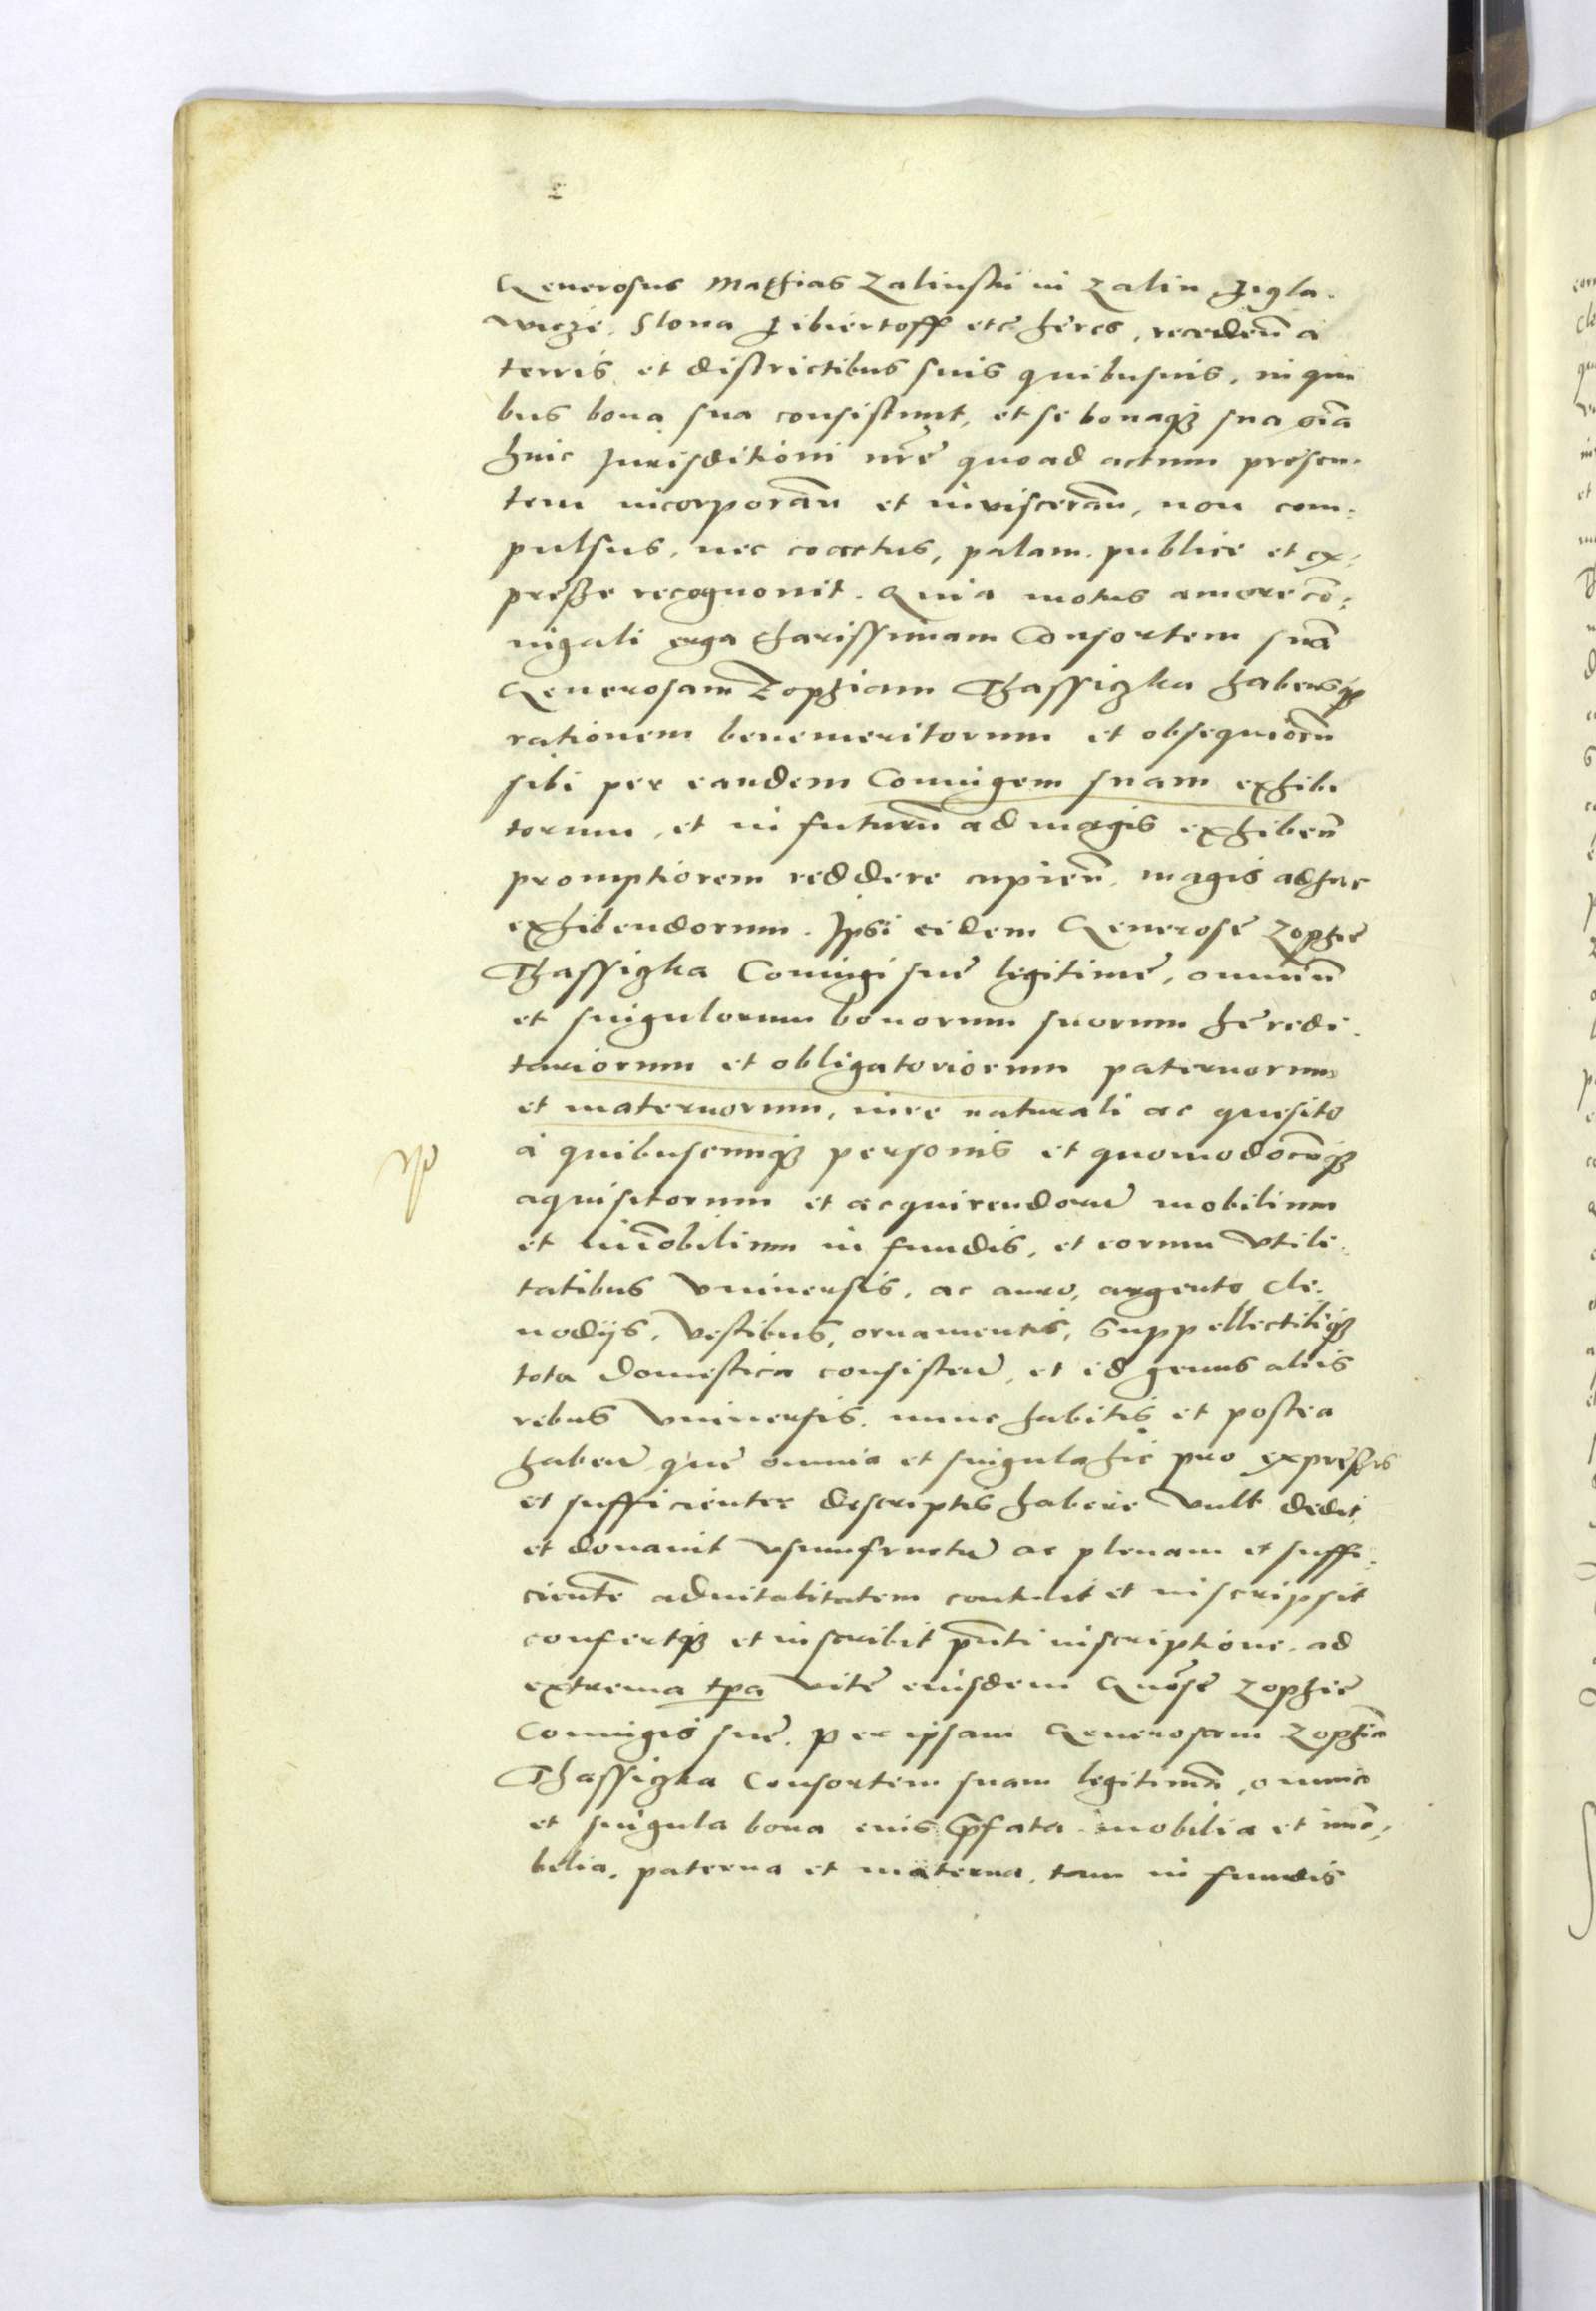 Generosus Mathias Zalinski in Zalin Jigla-
wicze. Slona Libiertoff etc heres, recedeñ a
terris et districtibus suis quibusuis, in qui
bus bona sua consistunt, et se bonaqз sua oĩa
huic Jurisditioni nrẽ quoad actum presen-
tem incorporañ et inviscerañ, non com:
pulsus, nec coactus, palam publice et ex:
preße recognouit. Quia motus amore cõ:
iugali erga charissimam Consortem suã
Generosam Zophiam Thassiczka habensqз
rationem benemeritorum et obsequiorũ
sibi per eandem Coniugem suam exhibi
torum, et in futurũ ad magis exhibeñ
promptiorem reddere cupieñ, magis adhuc
exhibendorum. Ipsi eidem Generosę Zophię
Thassiczka Coniugi suę legitimę, omniũ
et singulorum bonorum suorum hęredi-
tariorum et obligatoriorum paternorum
et maternorum, iure naturali ac quesito
à quibuscunqз personis et quomodocũqз
aquisitorum et acquirendorũ mobilium
et im̃obilium in fundis, et eorum vtili:
tatibus vniuersis, ac auro, argento cle-
nodijs, vestibus, ornamentis, suppellectiliqз
tota domestica consisteñ, et id genus aliis
rebus vniuersis, nunc habitis et postea
habeñ quę omnia et singula hic pro expreßis
et sufficienter descriptis habere vult dedit
et donauit vsumfructũ ac plenam et suffi:
cientẽ aduitalitatem contulit et inscripsit
confertqз et inscribit pñti inscriptione ad
extrema tpa vitę eiusdem Gnõsę Zophię
Coniugis suę. per ipsam Generosam Zophiã
Thassiczka Consortem suam legitimã, omnia
et singula bona eius p̃fata mobilia et imõ:
bilia, paterna et materna, tam in fundis